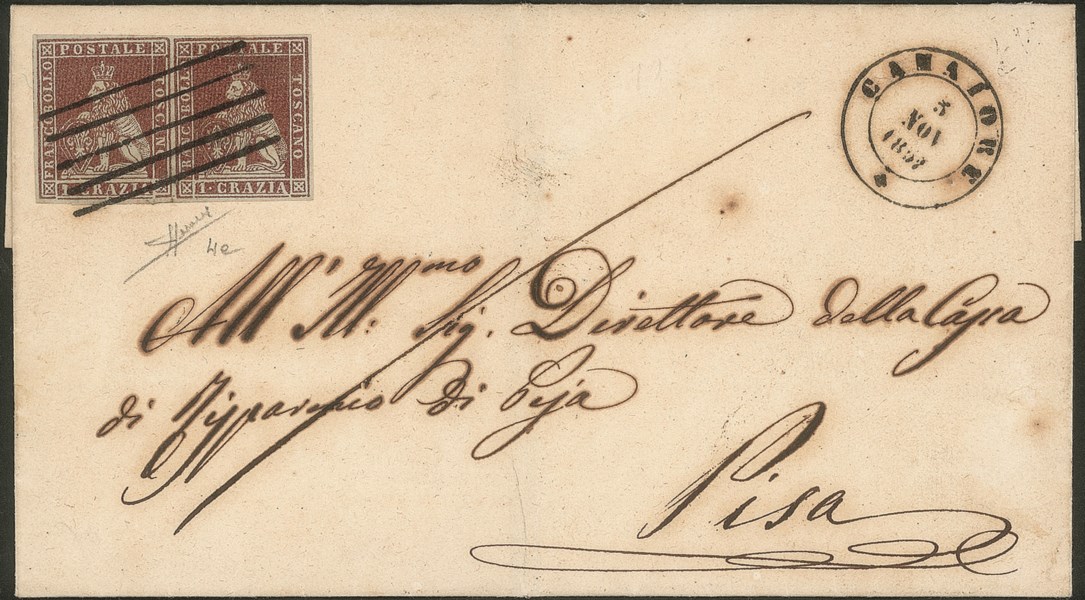 FRANCOBOLLO POSTALE TOSCANO
1·GRAZIA
FRANCOBOLLO POSTALE TOSCANO
1·CRAZIA
CAMAIORE
5
NOV
1852
4e
All' Ill:mo Sig. Direttore della Cassa
di Risparmio di
Pisa